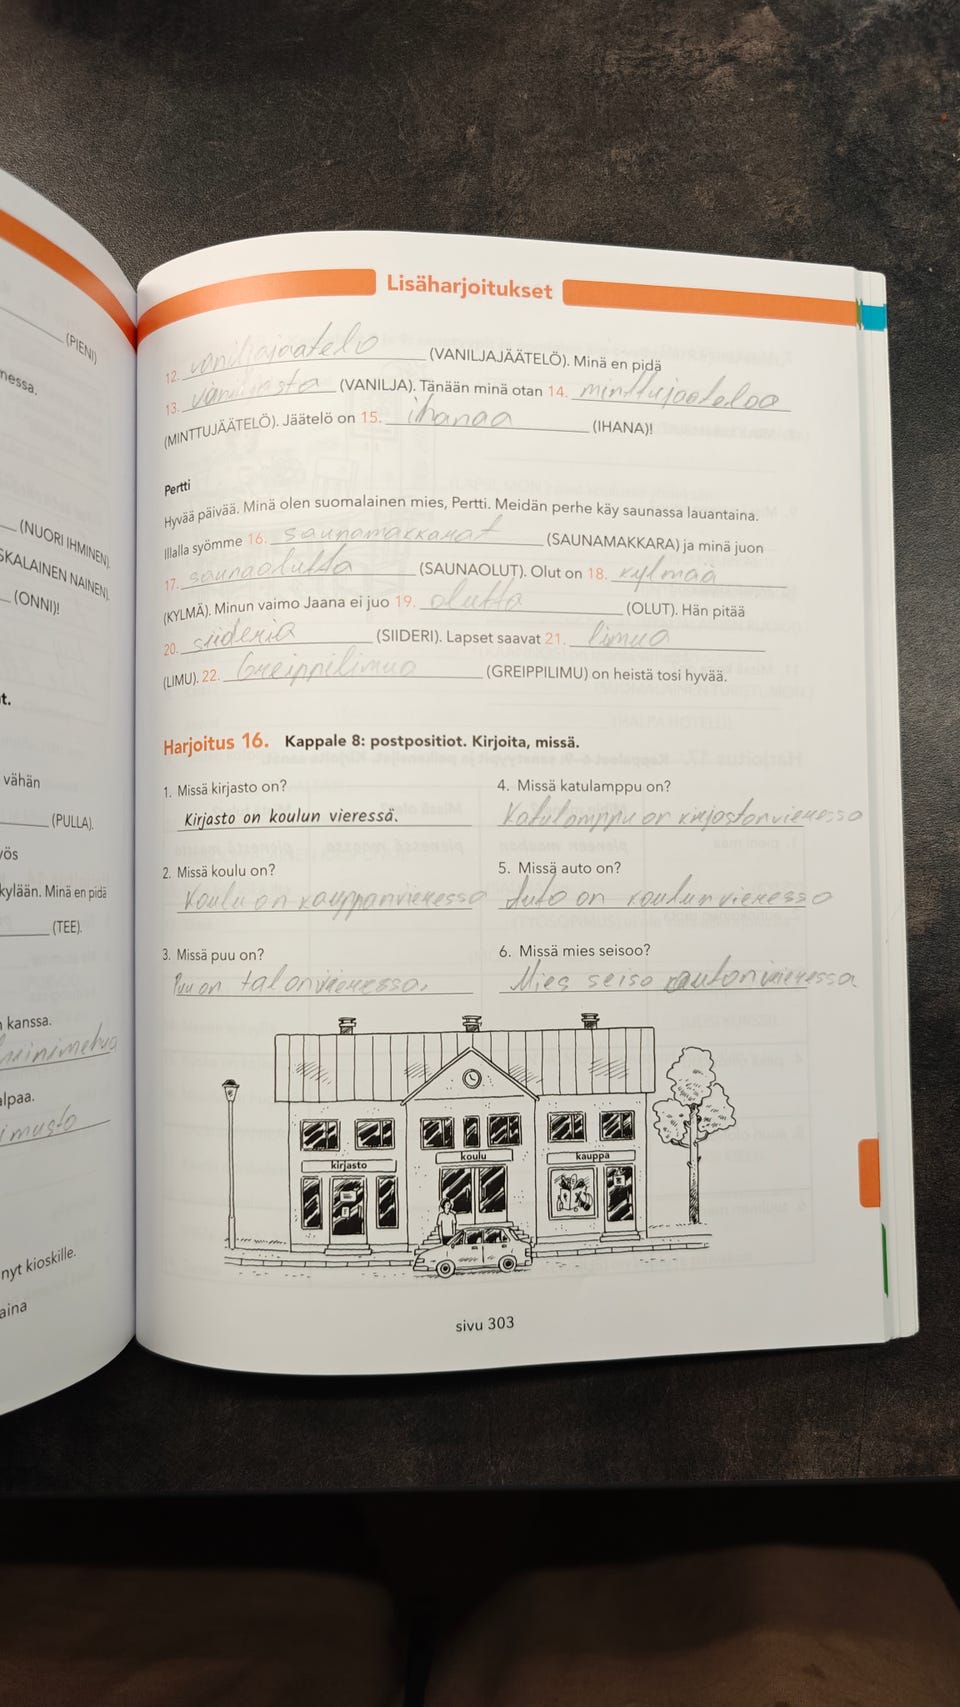 Lisäharjoitukset
(PIENI)
nessa.
(NUORI IHMINEN).
SKALAINEN NAINEN).
(ONNI)!
t.
vähän
(PULLA).
yös
kylään. Minä en pidä
(TEE).
n kanssa.
alpaa.
nyt kioskille.
aina
12. vaniljajäätelö (VANILJAJÄÄTELÖ). Minä en pidä
13. (VANILJA). Tänään minä otan 14. minttujäätelöä
(MINTTUJÄÄTELÖ). Jäätelö on 15. ihanaa (IHANA)!
Pertti
Hyvää päivää. Minä olen suomalainen mies, Pertti. Meidän perhe käy saunassa lauantaina.
Illalla syömme 16. saunamakkarat (SAUNAMAKKARA) ja minä juon
17. saunaolutta (SAUNAOLUT). Olut on 18. kylmää
(KYLMÄ). Minun vaimo Jaana ei juo 19. olutta (OLUT). Hän pitää
20. siideria (SIIDERI). Lapset saavat 21. limua
(LIMU). 22. Greippilimua (GREIPPILIMU) on heistä tosi hyvää.
Harjoitus 16. Kappale 8: postpositiot. Kirjoita, missä.
1. Missä kirjasto on?
Kirjasto on koulun vieressä.
2. Missä koulu on?
Koulu on kauppan vieressa
3. Missä puu on?
Puu on talon vieressa.
4. Missä katulamppu on?
Katulamppu on kirjaston vieressa
5. Missä auto on?
Auto on koulun vieressa
6. Missä mies seisoo?
Mies seiso auton vieressa
kirjasto
koulu
kauppa
sivu 303